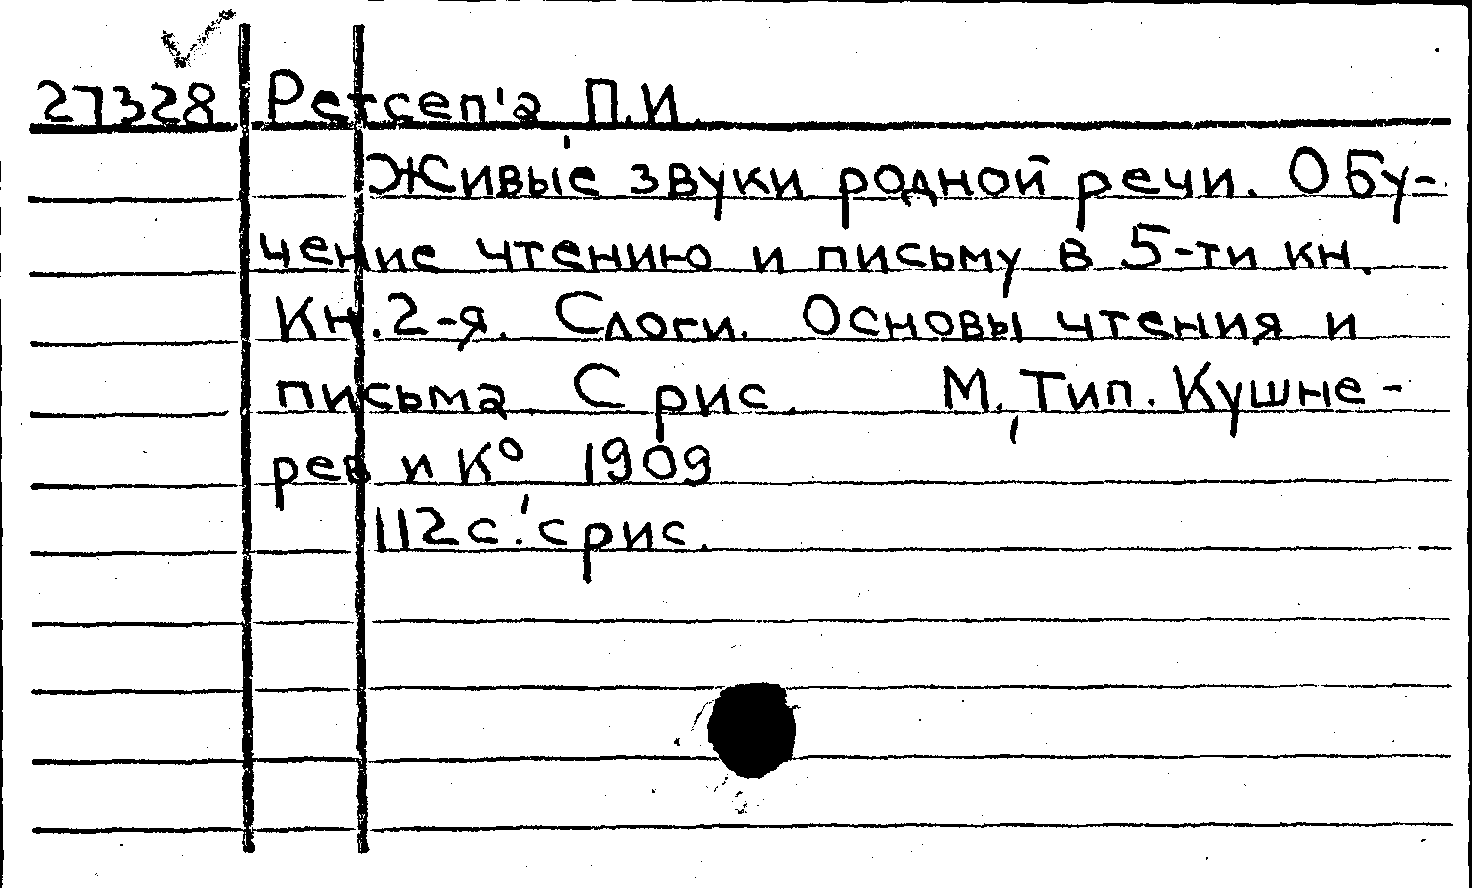 27328 Ретсеп'а, П.И.
Живые звуки родной речи. Обу-
чение чтению и письму в 5-ти кн.
Кн.2-я. Слоги. Основы чтения и
письма. С рис. М., Тип. Кушне-
рев и К° 1909
112с.'с рис.